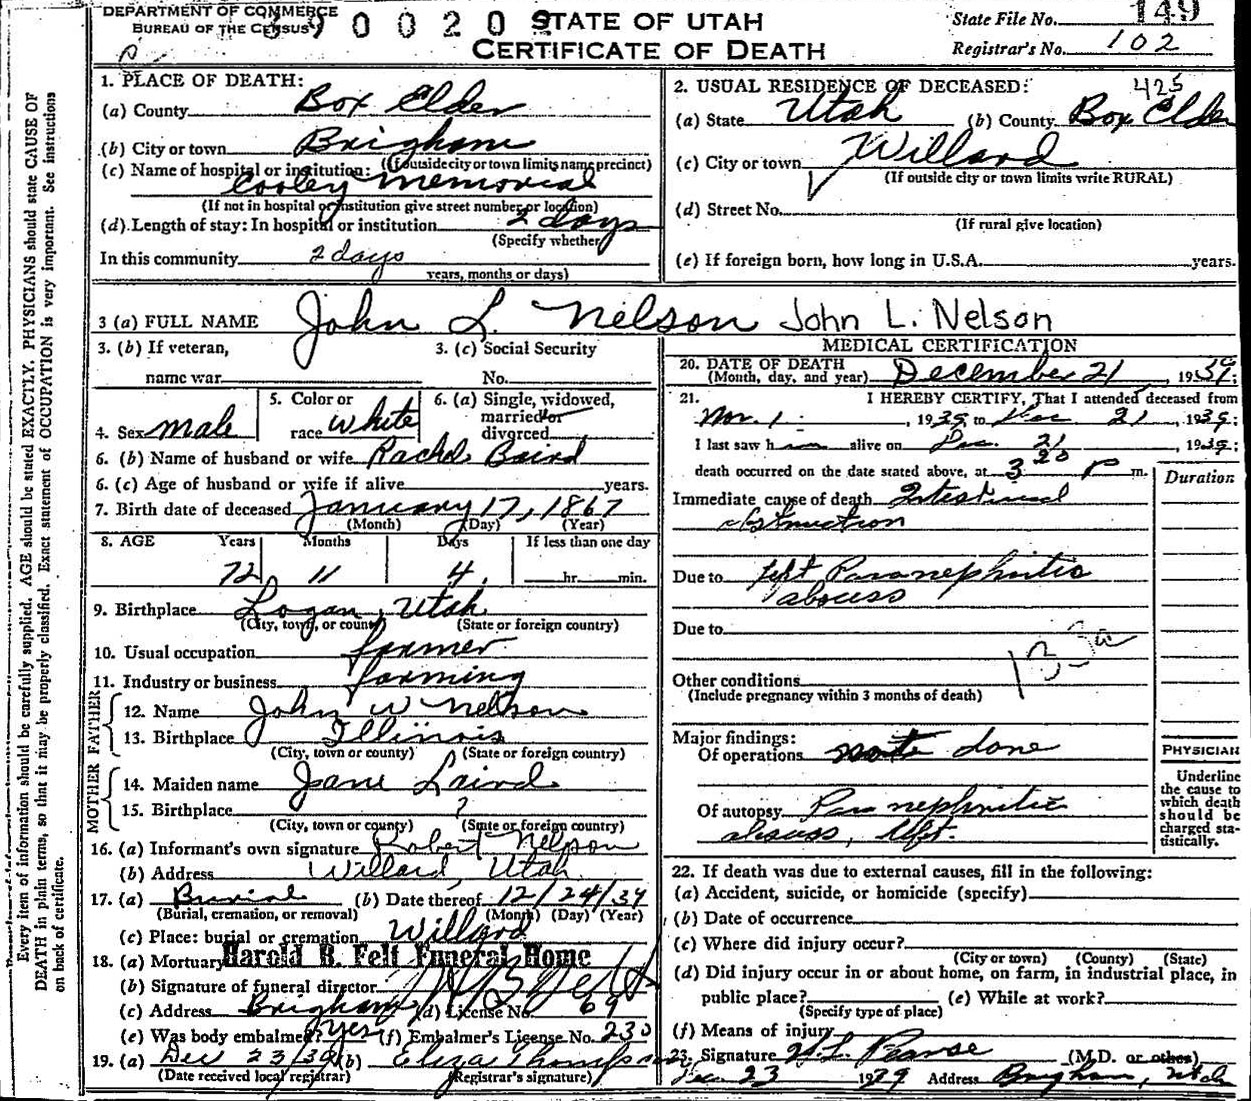 DEPARTMENT OF COMMERCE
BUREAU OF THE CENSUS
390020
STATE OF UTAH
CERTIFICATE OF DEATH
State File No. 149
Registrar's No. 102
Every item of information should be carefully supplied. AGE should be stated EXACTLY. PHYSICIANS should state CAUSE OF
DEATH in plain terms, so that it may be properly classified. Exact statement of OCCUPATION is very important. See instructions
on back of certificate.
1. PLACE OF DEATH:
(a) County Box Elder
(b) City or town Brigham
(If outside city or town limits name precinct)
(c) Name of hospital or institution:
Cooley Memorial
(If not in hospital or institution give street number or location)
(d) Length of stay: In hospital or institution 2 days
(Specify whether
In this community 2 days
years, months or days)
2. USUAL RESIDENCE OF DECEASED: 425
(a) State Utah (b) County Box Elder
(c) City or town Willard
(If outside city or town limits write RURAL)
(d) Street No.
(If rural give location)
(e) If foreign born, how long in U.S.A. years.
3 (a) FULL NAME John L. Nelson John L. Nelson
3. (b) If veteran, 3. (c) Social Security
name war No.
4. Sex Male
5. Color or
race White
6. (a) Single, widowed,
married or
divorced
6. (b) Name of husband or wife Rachel Baird
6. (c) Age of husband or wife if alive years.
7. Birth date of deceased January 17, 1867
(Month) (Day) (Year)
8. AGE Years Months Days If less than one day
72 11 4 hr. min.
9. Birthplace Logan, Utah
(City, town, or county) (State or foreign country)
10. Usual occupation farmer
11. Industry or business farming
FATHER
12. Name John W Nelson
13. Birthplace Illinois
(City, town or county) (State or foreign country)
MOTHER
14. Maiden name Jane Laird
15. Birthplace ?
(City, town or county) (State or foreign country)
16. (a) Informant's own signature Robert Nelson
(b) Address Willard, Utah
17. (a) Burial (b) Date thereof 12/24/39
(Burial, cremation, or removal) (Month) (Day) (Year)
(c) Place: burial or cremation Willard
18. (a) Mortuary Harold B. Felt Funeral Home
(b) Signature of funeral director H B Felt
(c) Address Brigham (d) License No. 69
(e) Was body embalmed? yes (f) Embalmer's License No. 230
19. (a) Dec 23/39 (b) Eliza Thompson
(Date received local registrar) (Registrar's signature)
MEDICAL CERTIFICATION
20. DATE OF DEATH
(Month, day, and year) December 21, 1939;
21. I HEREBY CERTIFY, That I attended deceased from
Nov. 1, 1939 to Dec 21, 1939;
I last saw him alive on Dec. 21, 1939;
death occurred on the date stated above, at 3 20 P m.
Duration
Immediate cause of death Intestinal
obstruction
Due to left Paranephritic
abscess
Due to
Other conditions
(Include pregnancy within 3 months of death)
Major findings:
Of operations not done
Of autopsy Paranephritic
abscess, left.
PHYSICIAN
Underline
the cause to
which death
should be
charged sta-
tistically.
22. If death was due to external causes, fill in the following:
(a) Accident, suicide, or homicide (specify)
(b) Date of occurrence
(c) Where did injury occur?
(City or town) (County) (State)
(d) Did injury occur in or about home, on farm, in industrial place, in
public place? (e) While at work?
(Specify type of place)
(f) Means of injury
23. Signature (M.D. or other)
Dec 23 1939 Address Brigham, Utah